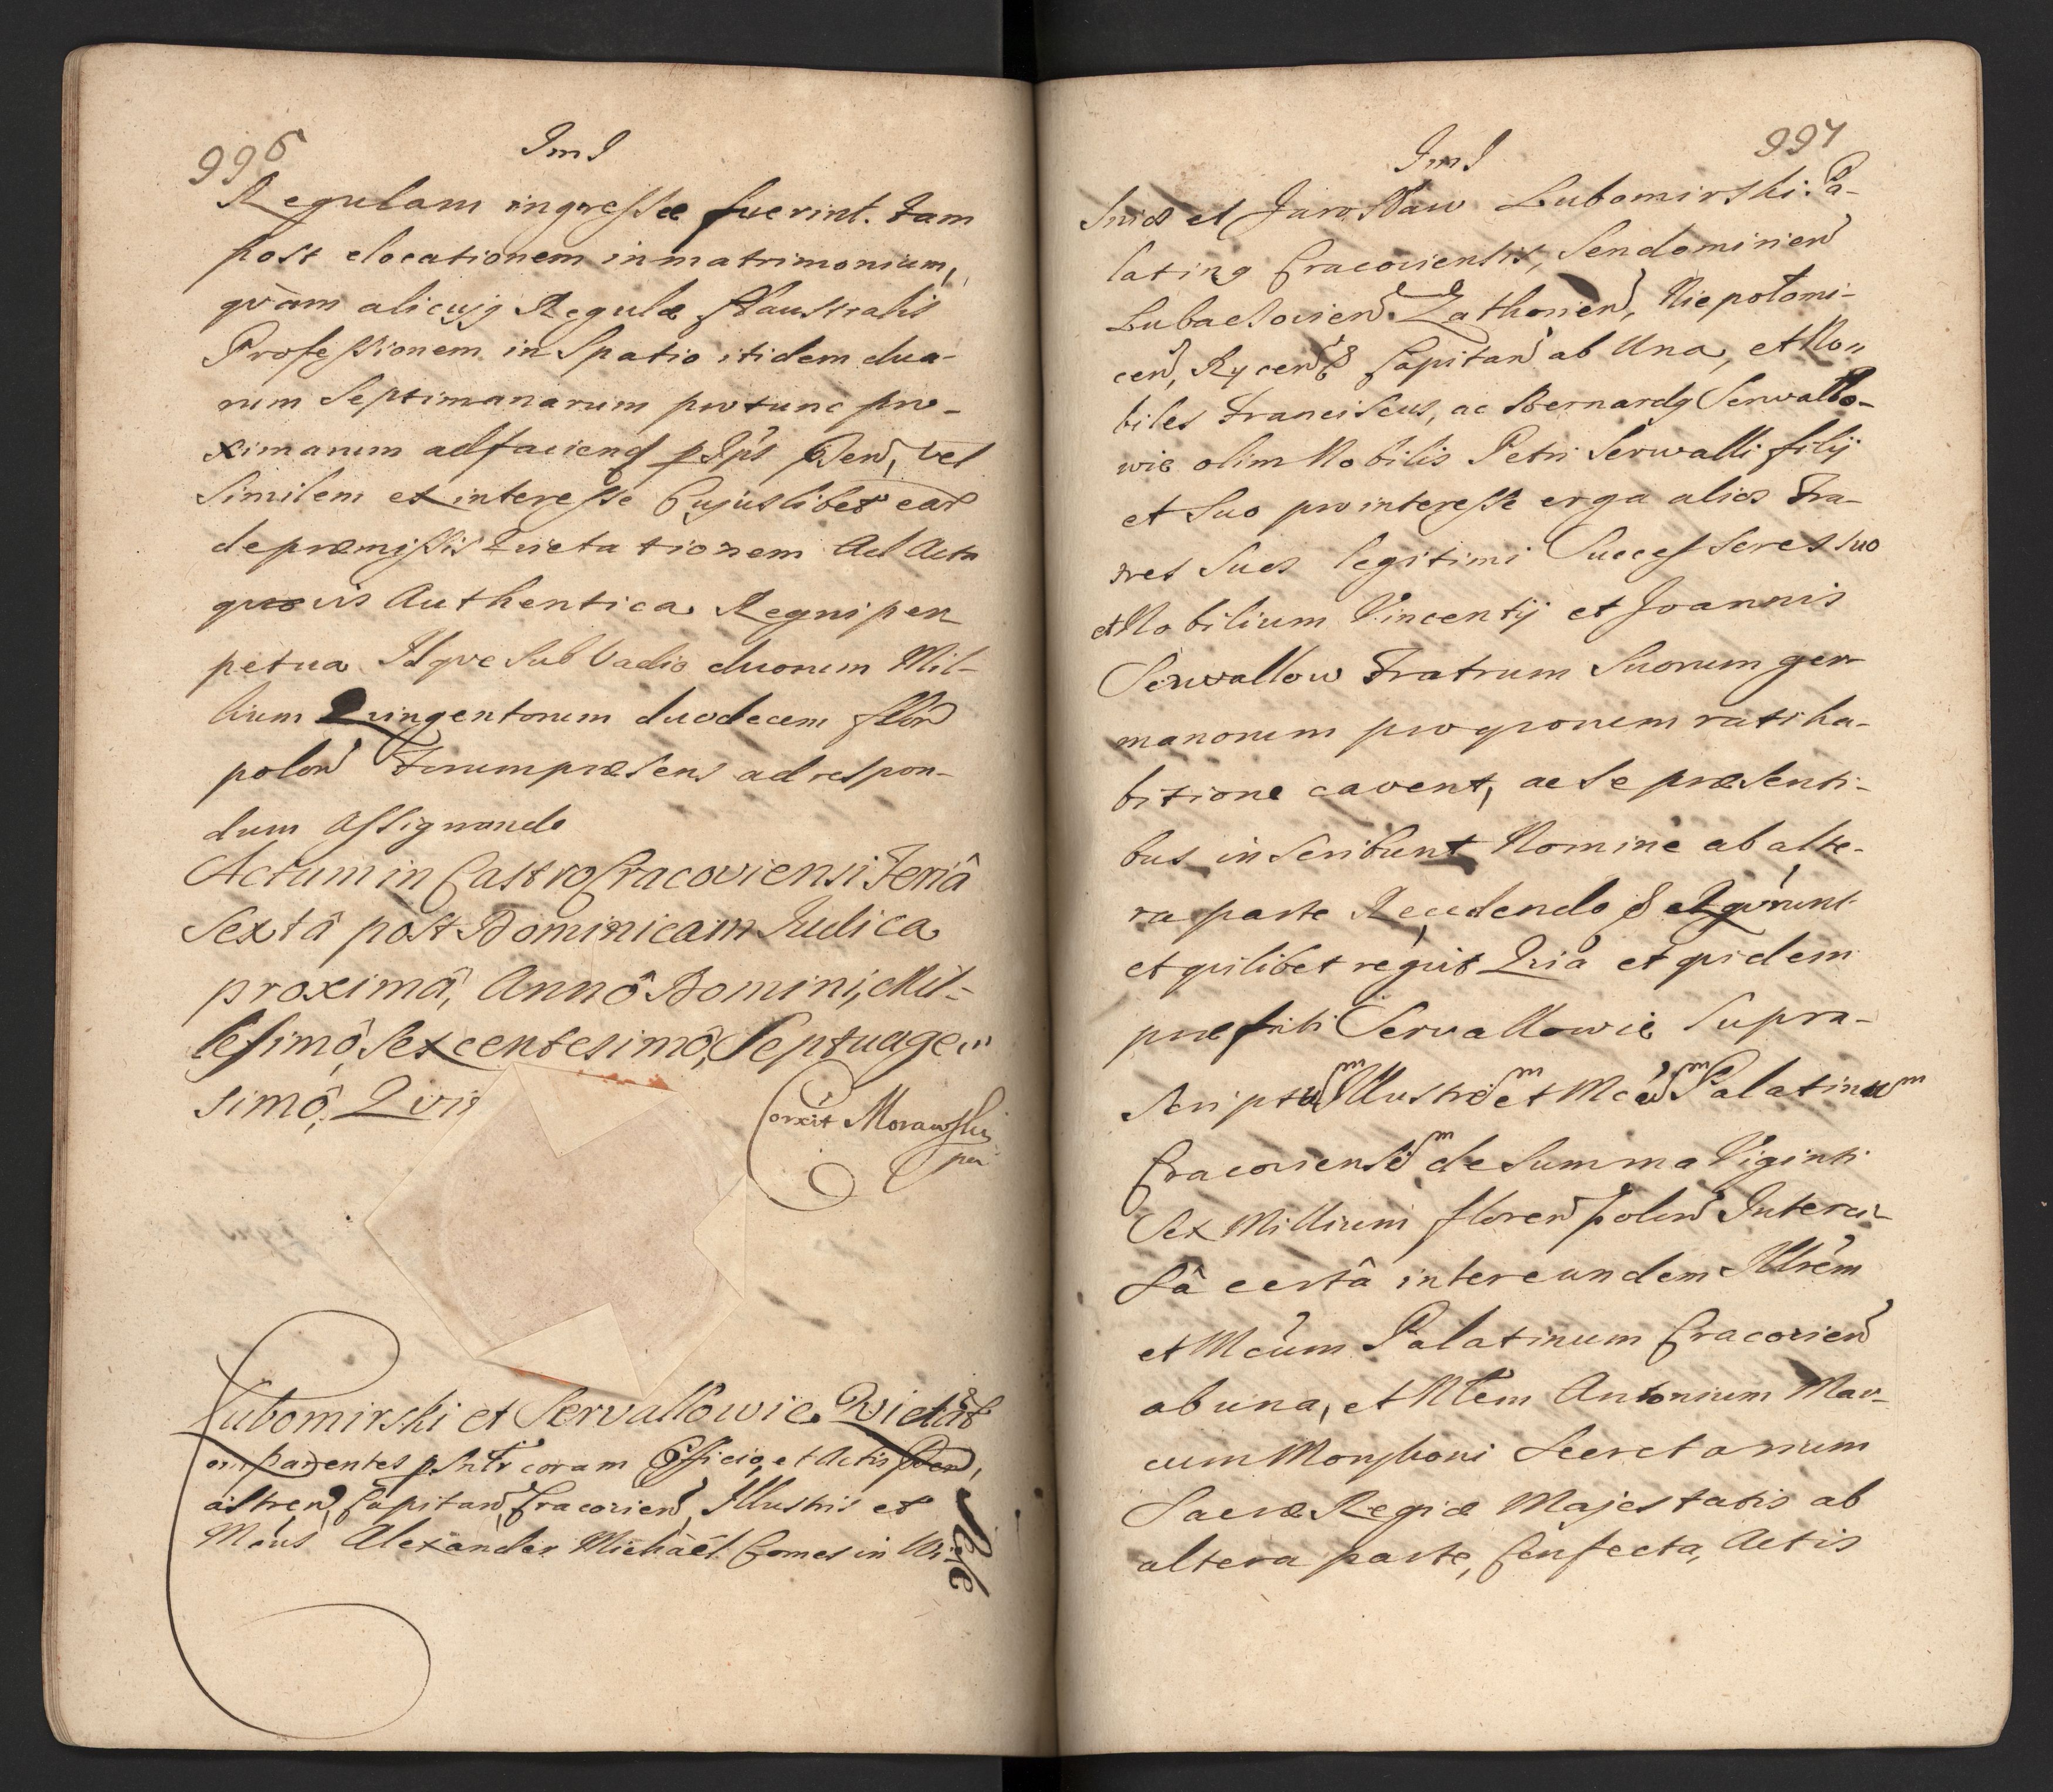 996
Regulam ingressæ fuerint. Tam
post elocationem in matrimonium,
qvam alicujq Regulæ Claustralis
Professionem in Spatio itidem dua-
rum Septimanarum protunc pro-
ximarum ad faciend
Similem et interesse Cujuslibet ear
de præmissis Qvietationem Ad Acta
qvævis Authentica Regni per
petua Idqve Sub Vadio duorum Mil-
lium Quingentorum duodecem flor
polon Forum præsens ad respon-
dum assignando
Actum in Castro Cracoviensi Feriâ
Sextâ post Dominicam Iudica
proximâ, Annô Domini, Mil-
lesimô, Sexcentesimô, Septuage-
simô, Qvi
Corxit Morawski
Lubomirski et Servallowie Qvietat
Comparentes psntr coram Officio, et Actis pren,
astren, Capitan, Cracovien, Illustris et
Mcus Alexander Michaël Comes in Wi
997
Snicz et Jarosław Lubomirski: Pa-
latinq Cracoviensis, Sendomirien
Lubaczovien Zathorien, Niepołomi-
cen, Rycen Capitan ab Una, et No-
biles Franciscus, ac Bernardq Servallo-
wie olim Nobilis Petri Serwalli filij
et Suo pro interesse erga alios Fra-
tres Suos legitimi Successores Suo
et Nobilium Vincentij et Joannis
Serwallow Fratrum Suorum ger
manorum pro qvorum ratiha-
bitione cavent, ac Se præsenti-
bus inscribunt Nomine ab alte-
ra parte Recedendo
et qvilibet Qvia et qvidem
præfati Servallowie Supra-
Scriptum Illustrem et Mcum Palatinum
Cracoviensem de Summa Viginti
Sex Millium floren polon Interci-
Sâ certâ inter eundem Illrem
et Mcum Palatinum Cracovien
ab una, et Nlem Antonium Mar-
cum Secretarium
Sacræ Regiæ Majestatis ab
altera parte, Confecta, Actis